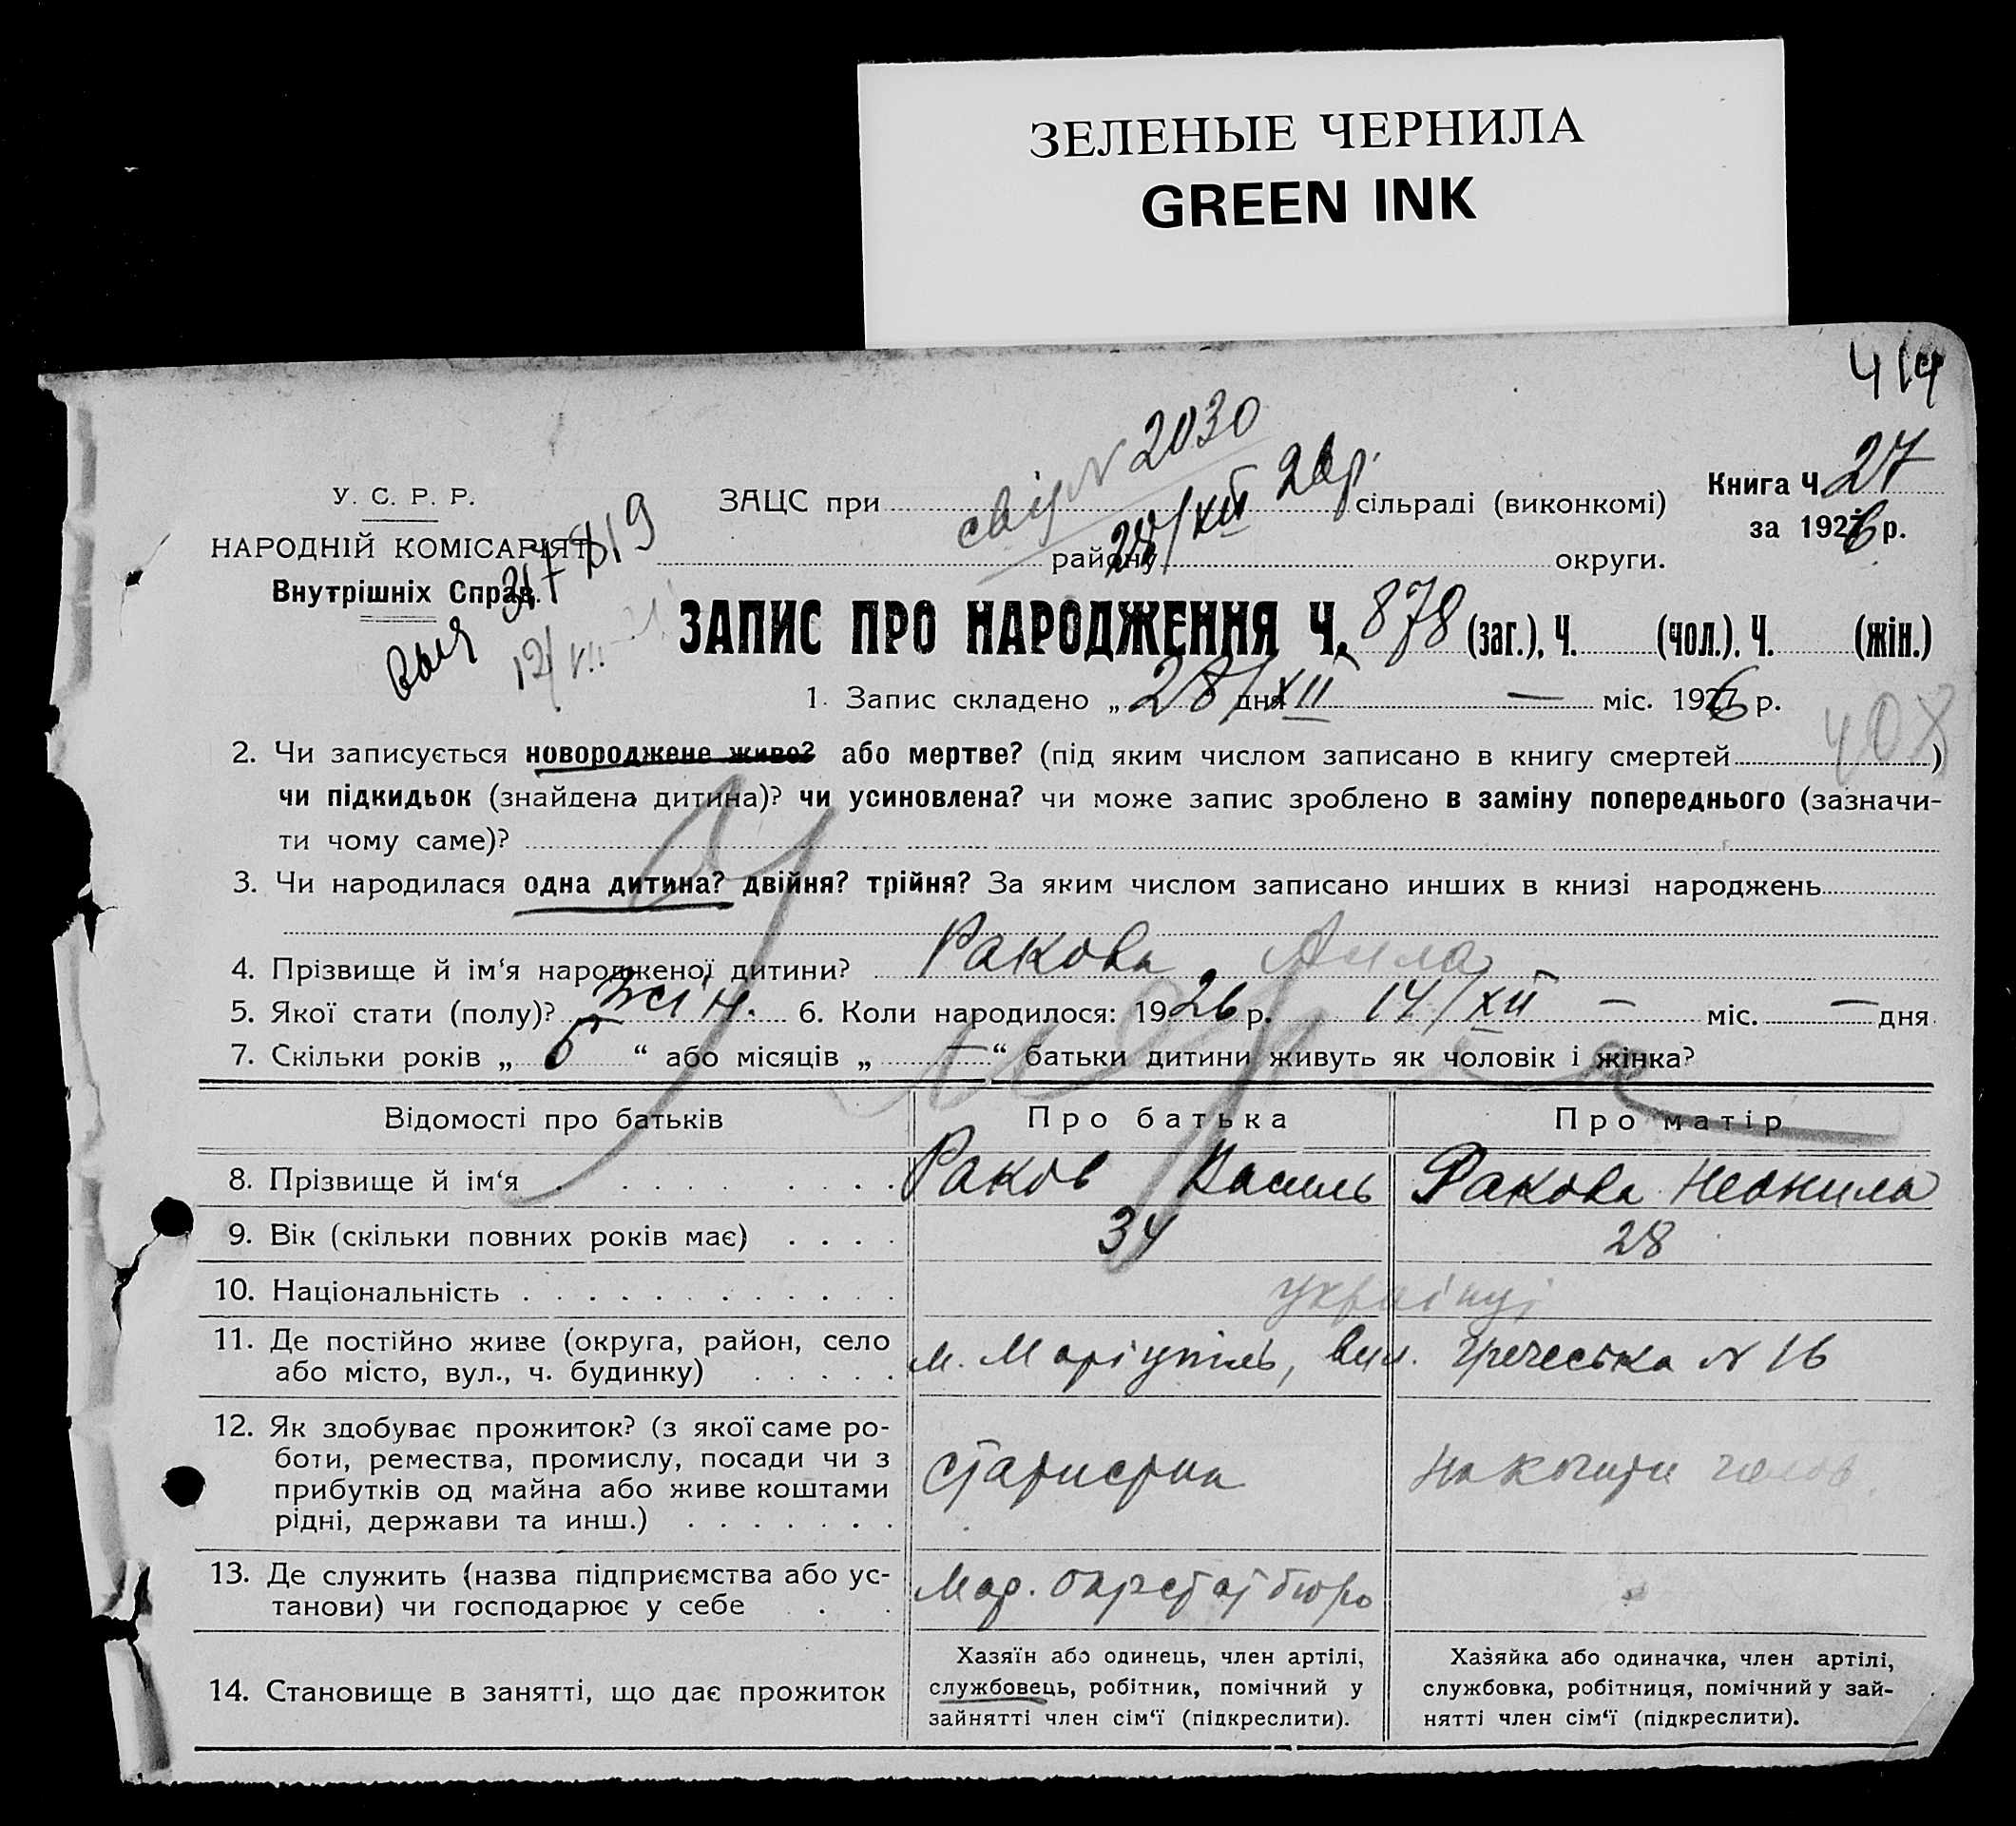 ЗЕЛЕНЫЕ ЧЕРНИЛА
GREEN INK
414
У. С. Р. Р.
НАРОДНІЙ КОМІСАРІЯТ
Внутрішніх Справ.
N 2030
28/XII 26р.
ЗАЦС при сільраді (виконкомі)
району округи.
Книга Ч. 27
за 1926 р.
ЗАПИС ПРО НАРОДЖЕННЯ Ч. 878 (заг.), Ч. (чол.). Ч. (жін.)
1. Запис складено „ 28/XII дня — міс. 1926 р.
408
2. Чи записується новороджене живе? або мертве? (під яким числом записано в книгу смертей )
чи підкидьок (знайдена дитина)? чи усиновлена? чи може запис зроблено в заміну попереднього (зазначи-
ти чому саме)?
3. Чи народилася одна дитина? двійня? трійня? За яким числом записано инших в книзі народжень
4. Прізвище й ім‘я народженої дитини? Ракова Алла
5. Якої стати (полу)? Жін. 6. Коли народилося: 1926 р. 14/XII — міс. — дня
7. Скільки років „ 5 “ або місяців „ — “ батьки дитини живуть як чоловік і жінка?
Відомості про батьків Про батька Про матір
8. Прізвище й ім‘я Раков Василь Ракова Неонила
9. Вік (скільки повних років має) 34 28
10. Національність українці
11. Де постійно живе (округа, район, село
або місто, вул., ч. будинку) м. Маріупіль, вул. Гречеська N 16
12. Як здобуває прожиток? (з якої саме ро-
боти, ремества, промислу, посади чи з
прибутків од майна або живе коштами
рідні, держави та инш.) статистик на кошти чолов.
13. Де служить (назва підприємства або ус-
танови) чи господарює у себе Мар. Окрстатбюро
14. Становище в занятті, що дає прожиток
Хазяїн або одинець, член артілі,
службовець, робітник, помічний у
зайнятті член сім‘ї (підкреслити).
Хазяйка або одиначка, член артілі,
службовка, робітниця, помічний у зай-
нятті член сім‘ї (підкреслити).